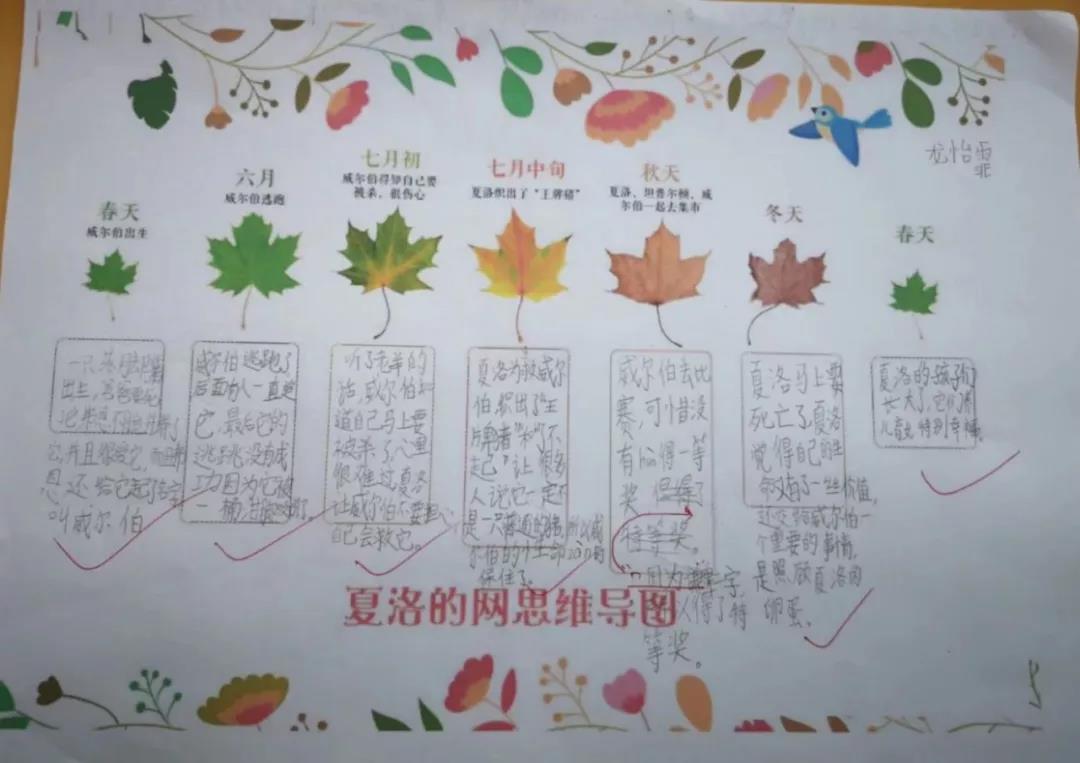 尤怡
春天
威尔伯出生
六月
威尔伯逃跑
七月初
威尔伯得知自己要
被杀，很伤心
七月中旬
夏洛织出了“王牌猪”
秋天
夏洛、坦普尔顿、威
尔伯一起去集市
冬天
春天
一只
出生，爸爸
它,并且很爱它,
恩还给它起了名字
叫威尔伯
威尔伯逃跑了
后面的人一直追
它,最后它的
逃跑没有成
功因为它被
一桶
听了老羊的
话,威尔伯知
道自己马上要
被杀了,心里
很难过,夏洛
让威尔伯不要担
自己会救它。
夏洛为救威尔
伯,织出了"王
牌猪""不
起"让很多
人说它一定不
是一只普通的猪,所以威
尔伯的小生命
保住了。
威尔伯去比
赛,可惜没
有得一等
奖,但得了
特等奖。
因为字,
得了特
等奖。
夏洛马上要
死亡了,夏洛
觉得自己的生
命又有了一些价值,
还交给威尔伯一
个重要的事情,
是照顾夏洛的
卵蛋。
夏洛的孩子们
长大了,它们
特别幸福。
夏洛的网思维导图